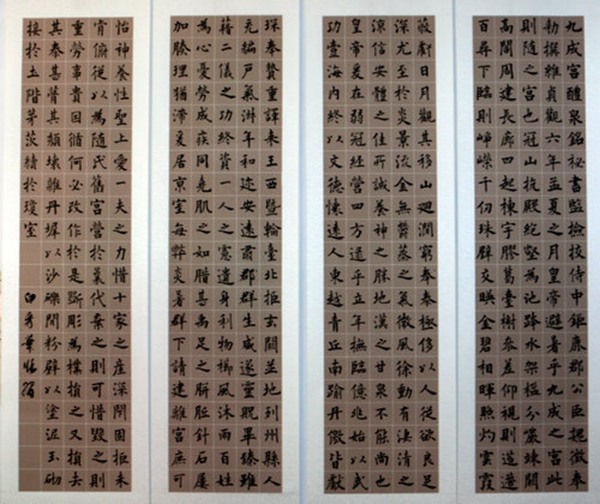 九成宮醴泉銘秘書監檢校侍中鉅鹿郡公臣魏徵奉
勅撰維貞觀六年孟夏之月皇帝避暑乎九成之宮此
則隨之宮也冠山抗殿絕壑為池跨水架楹分巖竦闕
高閣周建長廊四起棟宇膠葛臺榭參差仰視則迢遰
百尋下臨則崢嶸千仞珠璧交暎金碧相暉照灼雲霞
蔽虧日月觀其移山迴澗窮泰極侈以人從欲良足
深尤至於炎景流金無鬱蒸之氣微風徐動有淒清之
涼信安體之佳所誠養神之勝地漢之甘泉不能尚也
皇帝爰在弱冠經營四方逮乎立年撫臨億兆始以武
功壹海內終以文德懷遠人東越青丘南踰丹徼皆獻
琛奉贄重譯來王西暨輪臺北拒玄闕並地列州縣人
充編戶氣淑年和迩安遠肅郡群生咸遂靈貺畢臻雖
藉二儀之功終資一人之慮遺身利物櫛風沐雨百姓
為心憂勞成疾同堯肌之如腊甚禹足之胼胝針石屢
加腠理猶滯爰居京室每弊炎暑群下請建離宮庶可
怡神養性聖上愛一夫之力惜十家之產深閉固拒未
肯俯從以為隨氏舊宮營於曩代棄之則可惜毀之則
重勞事貴因循何必改作於是斲彫為樸損之又損去
其泰甚葺其頹壞雜丹墀以沙礫間粉壁以塗泥玉砌
接於土階茅茨續於瓊室
秀華臨